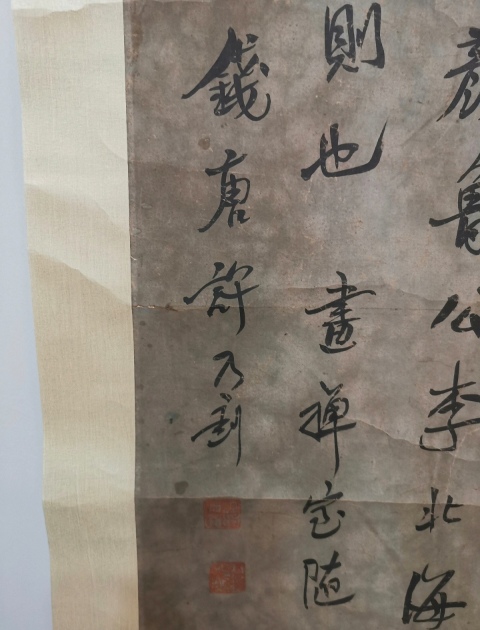 顏魯公李北海
則也 畫禪室隨
錢唐許乃釗